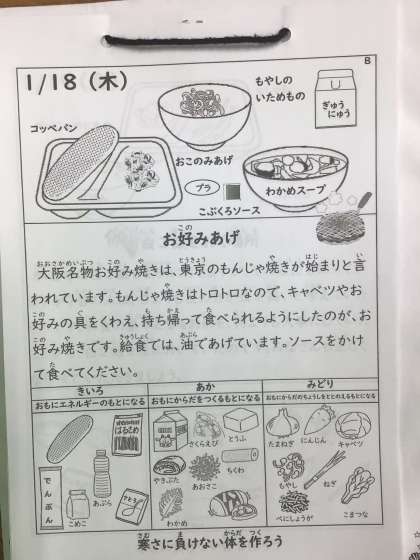 B
1/18（木）
もやしの
いためもの
ぎゅう
にゅう
コッペパン
おこのみあげ
プラ
わかめスープ
こぶくろソース
お好みあげ
大阪名物お好み焼きは、東京のもんじゃ焼きが始まりと言
われています。もんじゃ焼きはトロトロなので、キャベツやお
好みの具をくわえ、持ち帰って食べられるようにしたのが、お
好み焼きです。給食では、油であげています。ソースをかけ
て食べてください。
きいろ
あか
みどり
おもにエネルギーのもとになる
おもにからだをつくるもとになる
おもにからだのちょうしをととのえるもとになる
はるさめ
でんぷん
こめこ
あぶら
さとう
さくらえび
とうふ
やきぶた
あおさこ
ちくわ
わかめ
たまねぎ
にんじん
キャベツ
もやし
ねぎ
べにしょうが
こまつな
寒さに負けない体を作ろう